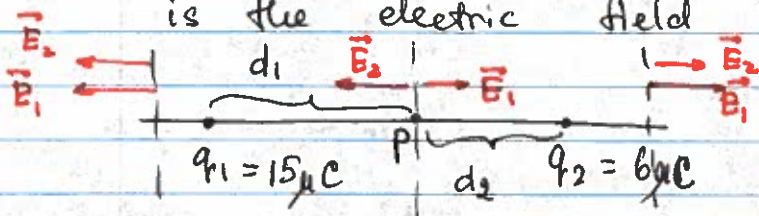 is the electric field
E₂ d₁ E₂ E₂
E₁ E₁ E₁
P
q₁ = 15μC d₂ q₂ = 6μC